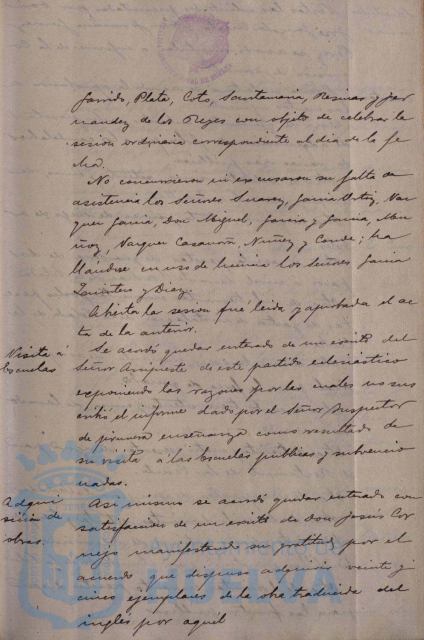 Garrido, Plata, Coto, Santamaria, Resinas y Fer
nandez de los Reyes con objeto de celebrar la
sesion ordinaria correspondiente al dia de la fe
cha.
No concurrieron ni excusaron su falta de
asistencia los Señores Suarez, Garcia Ortiz, Vaz
quez Garcia, Don Miguel, Garcia y Garcia, Mu
ñoz, Vazquez Casanova, Nuñez y Conde; ha
llándose en uso de licencia los Señores Garcia
y Diaz.
Abierta la sesion fué leida y aprobada el ac
ta de la anterior.
Visita á
Escuelas
Se acordó quedar enterado de un escrito del
Señor Arcipreste de este partido eclesiástico
exponiendo las razones por las cuales no sus
cribió el informe dado por el Señor Inspector
de primera enseñanza como resultado de
su visita á las Escuelas públicas y subvencio
nadas.
Adqui
sicion de
obras.
Asi mismo se acordó quedar enterado con
satisfaccion de un escrito de Don Jesús Cor
nejo manifestando su gratitud por el
acuerdo que dispuso adquirir veinte y
cinco ejemplares de la obra traducida del
inglés por aquél
HUELVA